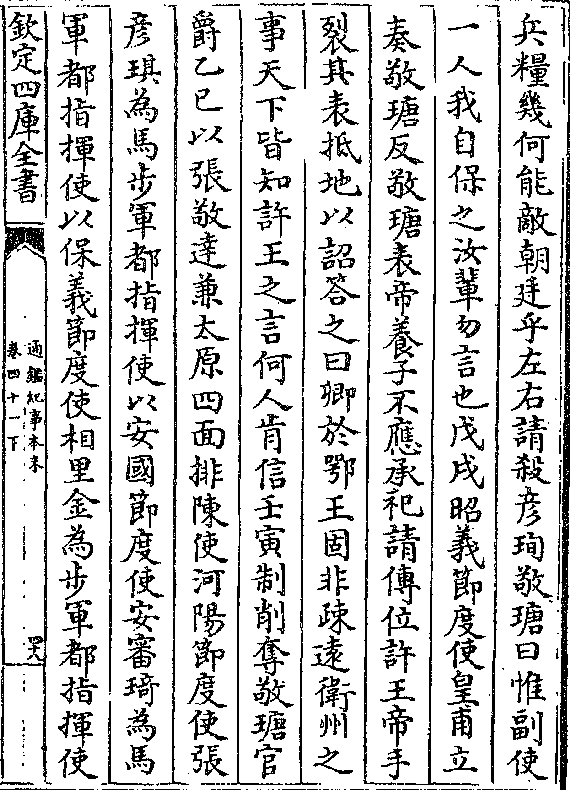 兵糧幾何能敵朝廷乎左右請殺彦珣敬瑭曰惟副使
一人我自保之汝輩勿言也戊戌昭義節度使皇甫立
奏敬瑭反敬瑭表帝養子不應承祀請傳位許王帝手
裂其表抵地以詔答之曰卿於鄂王固非疎遠衛州之
事天下皆知許王之言何人肯信壬寅制削奪敬瑭官
爵乙巳以張敬達兼太原四面排陳使河陽節度使張
彦琪為馬步軍都指揮使以安國節度使安審琦為馬
軍都指揮使以保義節度使相里金為步軍都指揮使
欽定四庫全書
通鑑紀事本末
卷四十一下
四八